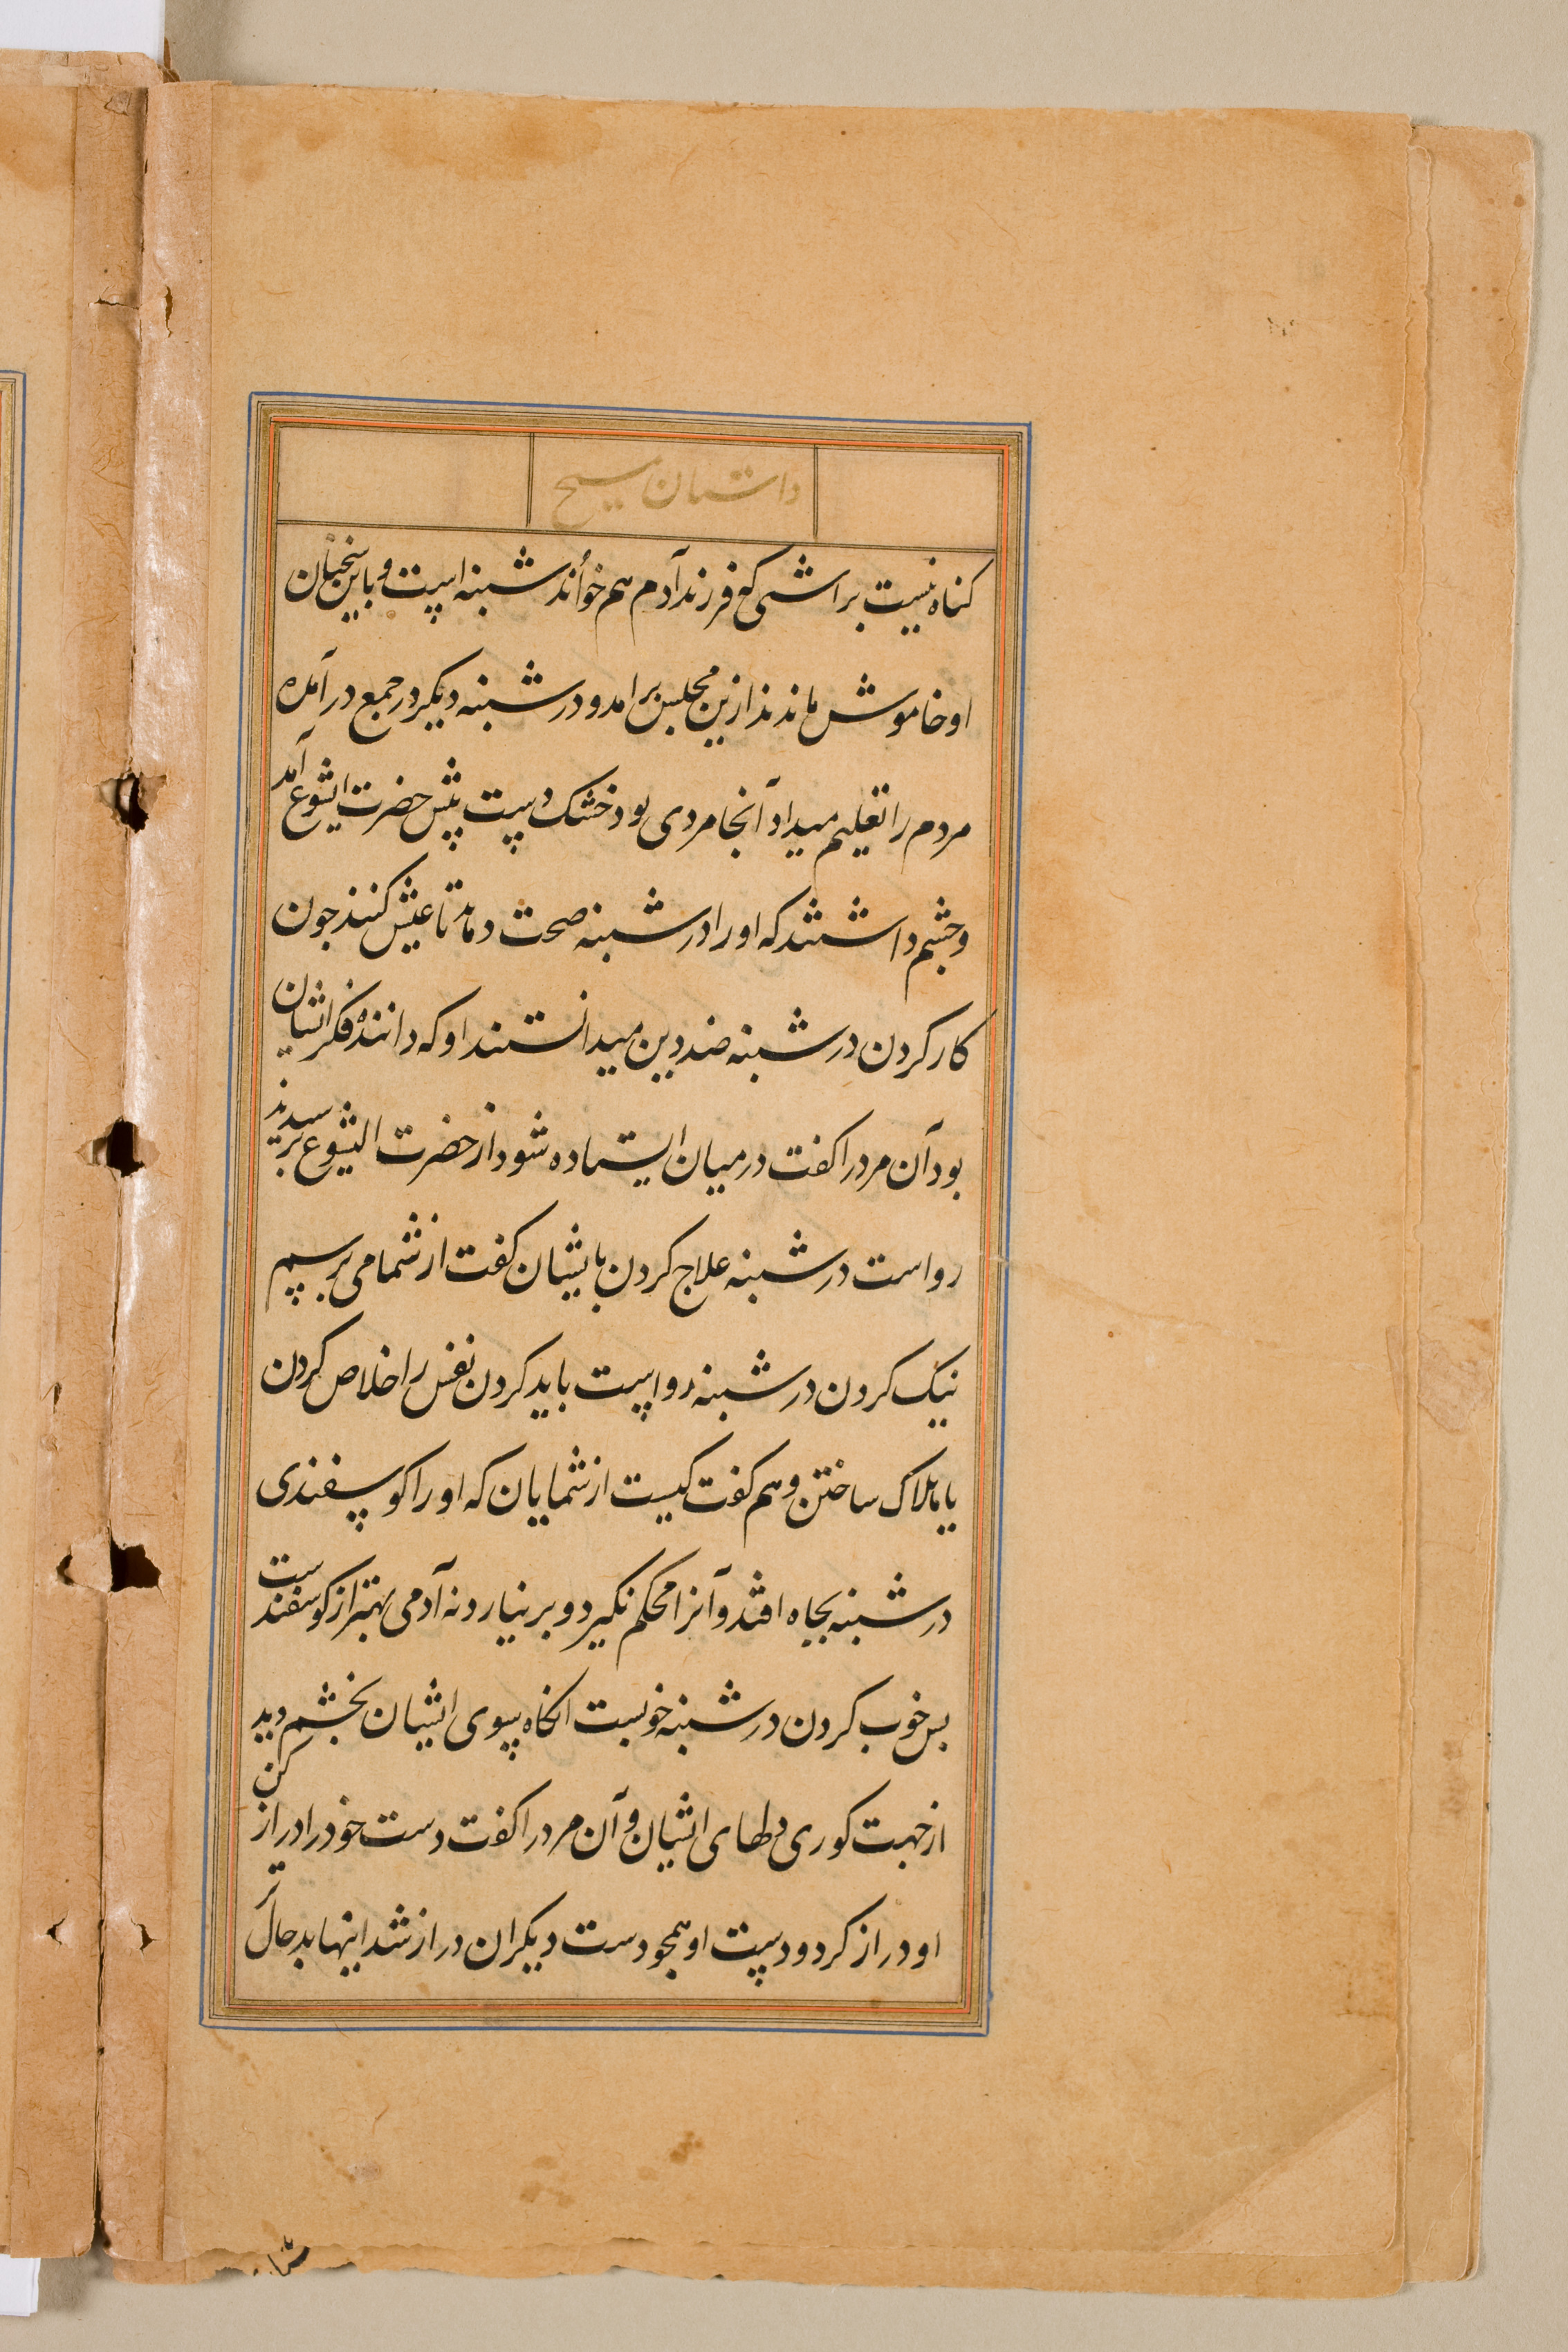 داستان مسیح
کناه نیست براستی که فرزند آدم هم خواند شنبه است و باین سخنان
او خاموش ماندند ازین مجلس برامد و در شنبه دیکر در جمع درآمده
مردم را تعلیم میداد آنجا مردی بود خشک دست پیش حضرت ایشوع آمد
و چشم داشتند که اورا در شنبه صحت دهد تا عیبش کنند چون
کار کردن در شنبه ضد دین میدانستند او که دانندهٔ فکر ایشان
بود آن مرد را کفت در میان ایستاده شو و از حضرت ایشوع پرسیدند
رواست در شنبه علاج کردن بایشان کفت از شما می پرسم
نیک کردن در شنبه رواست یا بد کردن نفس را خلاص کردن
یا هلاک ساختن و هم کفت کیست از شمایان که اورا کوسفندی
در شنبه بچاه افتد و آنرا محکم نکیرد و بر نیارد نه آدمی بهتر از کوسفند ست
پس خوب کردن در شنبه خوبست انکاه بسوی ایشان بخشم دید
از جهت کوری دلهای ایشان و آن مرد را کفت دست خود را دراز کن
او دراز کرد و دست او همچو دست دیکران دراز شد اینها بد حال تر